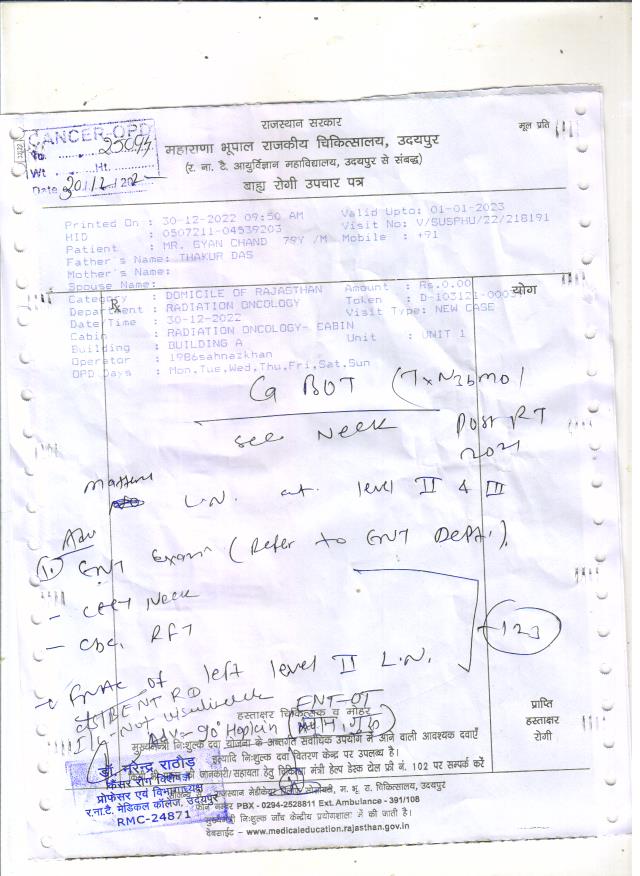 राजस्थान सरकार
मूल प्रति
महाराणा भूपाल राजकीय चिकित्सालय, उदयपुर
(र. ना. टै. आयुर्विज्ञान महाविद्यालय, उदयपुर से संबद्ध)
बाह्य रोगी उपचार पत्र
CANCER-OPD
Wt. Ht.
Date 30/12/202
Printed On : 30-12-2022 09:50 AM Valid Upto: 01-01-2023
HID : 0507211-04539203 Visit No: V/SUSPHU/22/218191
Patient : MR. GYAN CHAND 79Y /M Mobile : +91
Father's Name: THAKUR DAS
Mother's Name:
Spouse Name:
Category : DOMICILE OF RAJASTHAN Amount : Rs.0.00
योग
Department : RADIATION ONCOLOGY Token : D-103121-0003
Date/Time : 30-12-2022 Visit Type: NEW CASE
Cabin : RADIATION ONCOLOGY- CABIN
Building : BUILDING A Unit : UNIT 1
Operator : 1986sahnazkhan
OPD Days : Mon,Tue,Wed,Thu,Fri,Sat,Sun
Rx
Ca BOT (TxN3bM0)
Sec Neck Post RT
2021
L.N. at level II & III
Adv
1. ENT Exam (Refer to ENT Deptt.).
- CECT Neck
- CBC, RFT
- FNAC of left level II L.N.
123
ENT-OT
Adv - 90° Hopkin
हस्ताक्षर चिकित्सक व मोहर
प्राप्ति
हस्ताक्षर
रोगी
मुख्यमंत्री निःशुल्क दवा योजना के अन्तर्गत सर्वाधिक उपयोग में आने वाली आवश्यक दवाएँ
इत्यादि निःशुल्क दवा वितरण केन्द्र पर उपलब्ध है।
की जानकारी/सहायता हेतु चिकित्सा मंत्री हेल्प डेस्क टोल फ्री नं. 102 पर सम्पर्क करें
डॉ. नरेन्द्र राठौड़
कैंसर रोग विशेषज्ञ
प्रोफेसर एवं विभागाध्यक्ष
र.ना.टै. मेडिकल कॉलेज, उदयपुर
RMC-24871
राजस्थान मेडीकेयर रिलीफ सोसायटी, म. भू. रा. चिकित्सालय, उदयपुर
फोन नम्बर PBX - 0294-2528811 Ext. Ambulance - 391/108
मुख्यमंत्री निःशुल्क जाँच केन्द्रीय प्रयोगशाला में की जाती है।
वेबसाईट – www.medicaleducation.rajasthan.gov.in